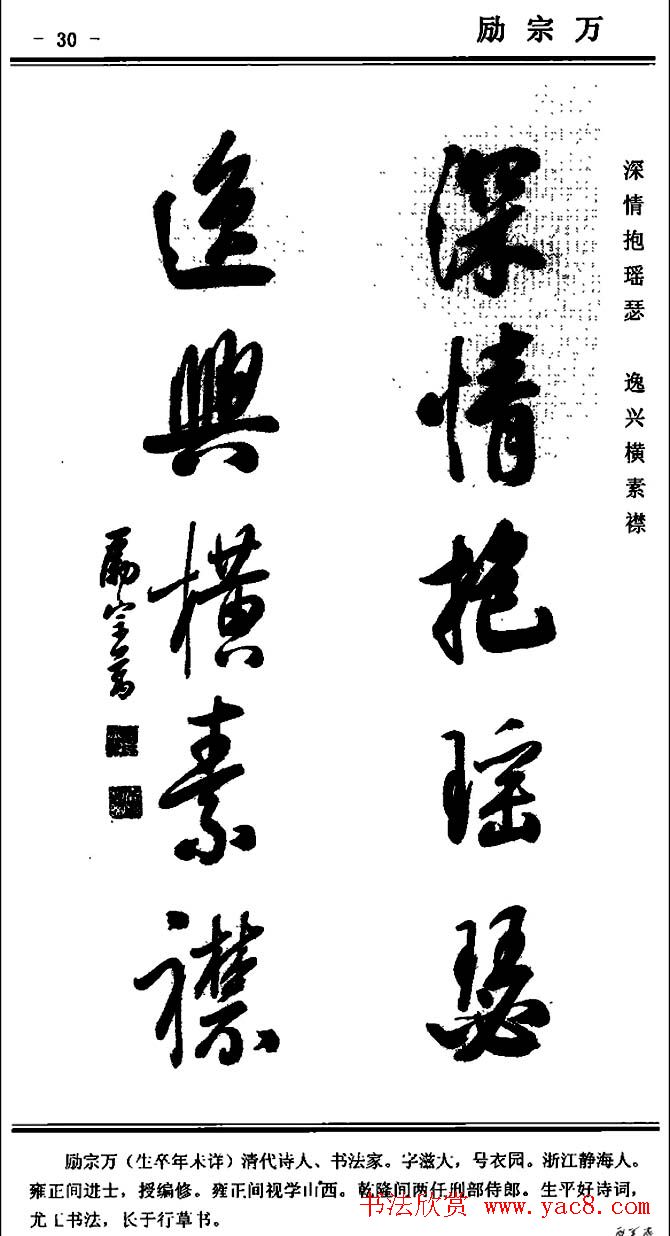 - 30 -
励宗万
深情抱瑶瑟 逸兴横素襟
深情抱瑶瑟
逸興橫素襟
励宗萬
励宗万（生卒年未详）清代诗人、书法家。字滋大，号衣园。浙江静海人。
雍正间进士，授编修。雍正间视学山西。乾隆间两任刑部侍郎。生平好诗词，
尤工书法，长于行草书。
书法欣赏 www.yac8.com